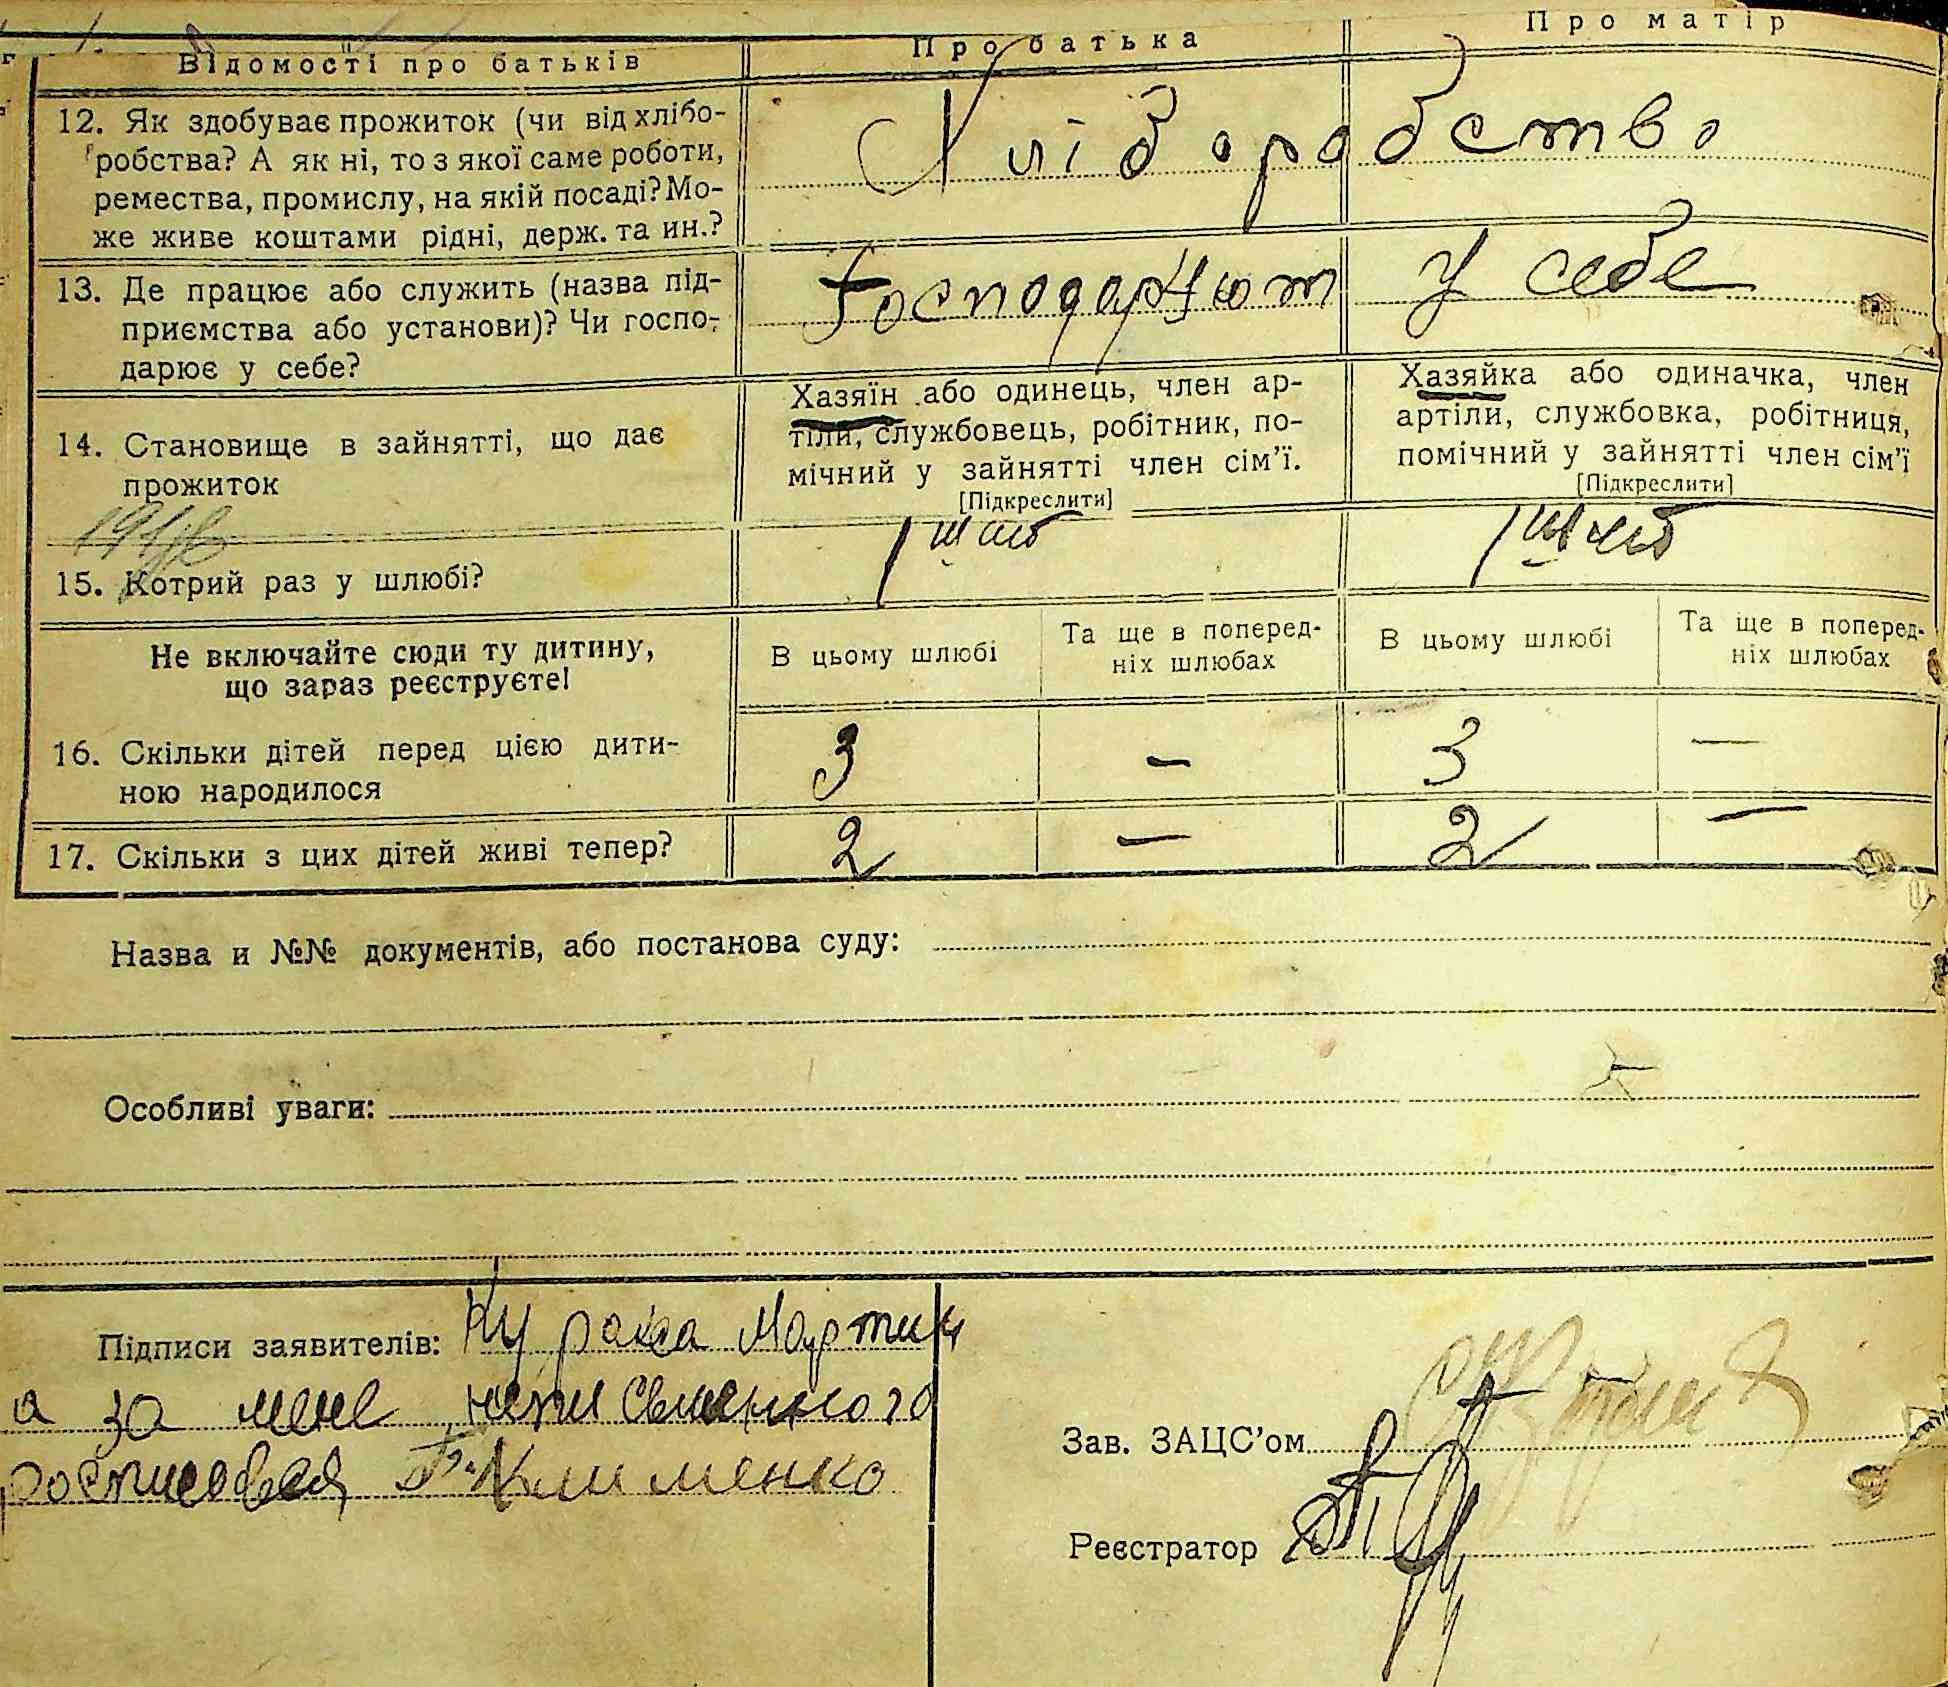 Відомості про батьків
Про батька
Про матір
12. Як здобуває прожиток (чи від хлібо-
робства? А як ні, то з якої саме роботи,
ремества, промислу, на якій посаді? Мо-
же живе коштами рідні, держ. та ин.?
Хліборобство
13. Де працює або служить (назва під-
приємства або установи)? Чи госпо-
дарює у себе?
Господарюют у себе
14. Становище в зайнятті, що дає
прожиток
Хазяїн або одинець, член ар-
тіли, службовець, робітник, по-
мічний у зайнятті член сім’ї.
[Підкреслити]
Хазяйка або одиначка, член
артіли, службовка, робітниця,
помічний у зайнятті член сім’ї
[Підкреслити]
15. Котрий раз у шлюбі?
1
1
Не включайте сюди ту дитину,
що зараз реєструєте!
В цьому шлюбі
Та ще в поперед-
ніх шлюбах
В цьому шлюбі
Та ще в поперед-
ніх шлюбах
16. Скільки дітей перед цією дити-
ною народилося
3 – 3 –
17. Скільки з цих дітей живі тепер?
2 – 2 –
Назва и №№ документів, або постанова суду:
Особливі уваги:
Підписи заявителів: Курака Мартин
а за мене
Клименко
Зав. ЗАЦС’ом
Реєстратор